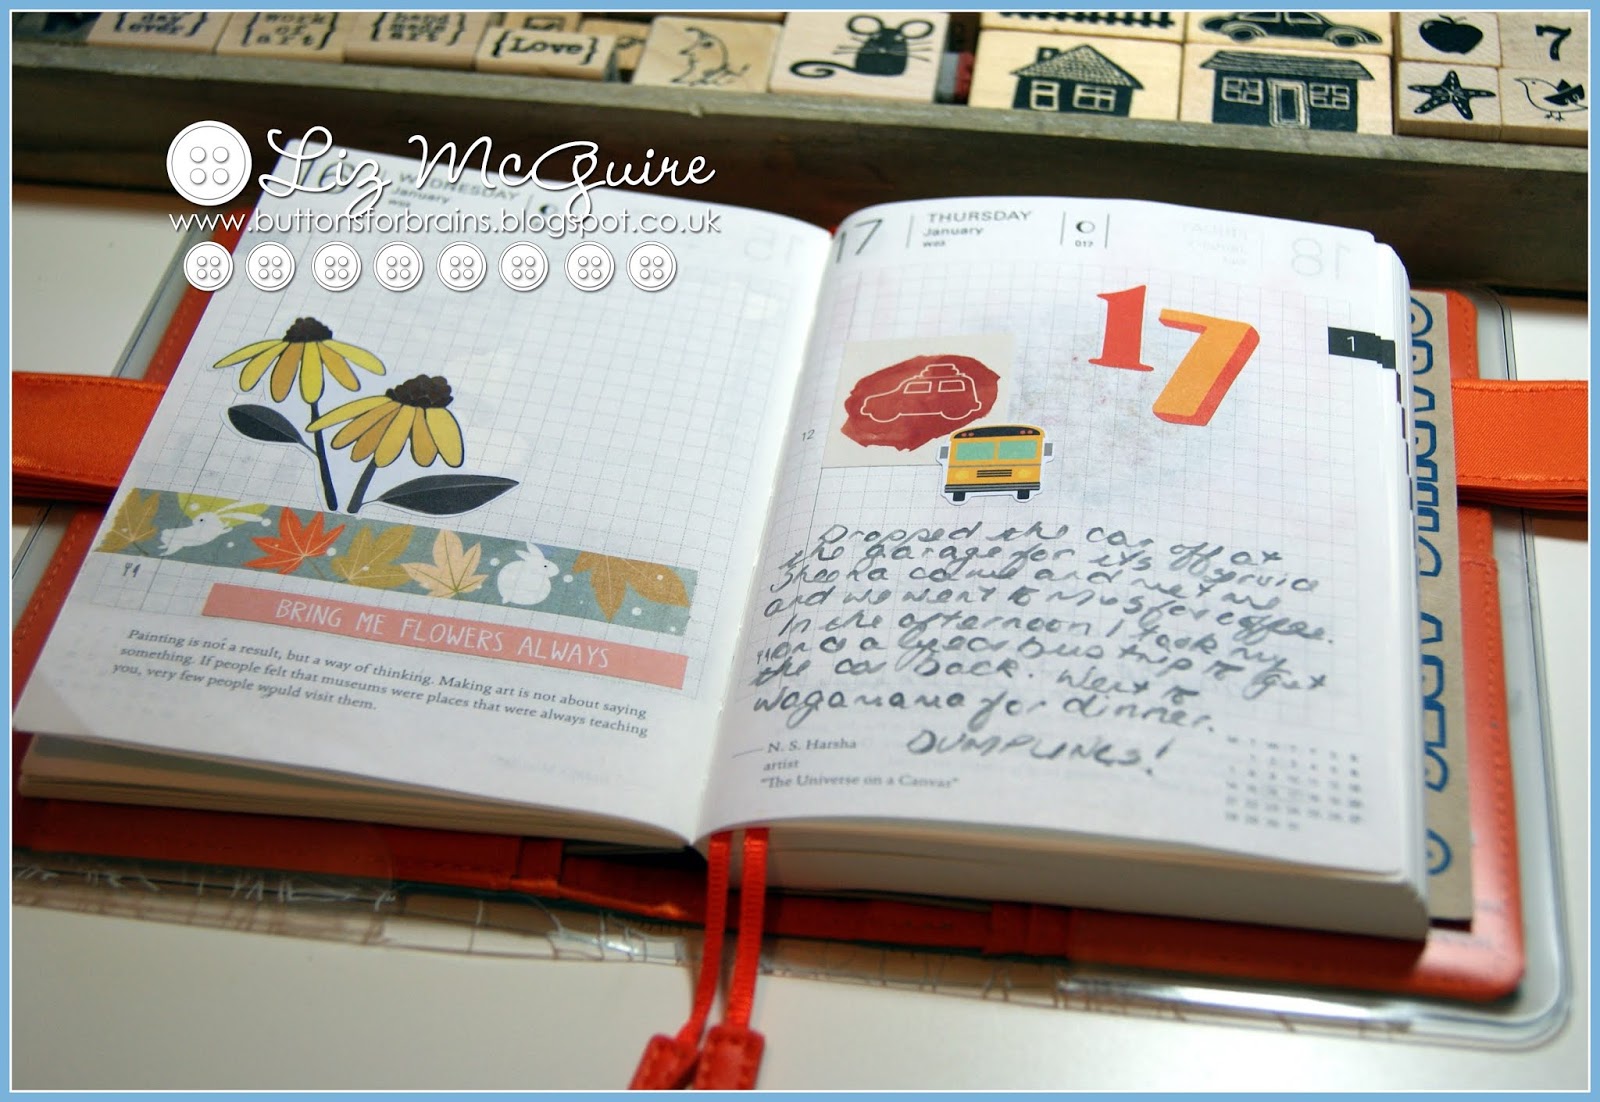 { day ever }
{ work of art }
{ hand made art }
{Love}
7
Liz McGuire
www.buttonsforbrains.blogspot.co.uk
16 WEDNESDAY
January
W03
15
BRING ME FLOWERS ALWAYS
Painting is not a result, but a way of thinking. Making art is not about saying
something. If people felt that museums were places that were always teaching
you, very few people would visit them.
17 THURSDAY
January
W03
017
18
17
1
12
Dropped the car off at
the garage for its service
Sheena came and met me
and we went to for coffee.
In the afternoon I took my
and a bus trip to get
the car back. Went to
Wagamama for dinner.
DUMPLINGS!
N. S. Harsha
artist
"The Universe on a Canvas"